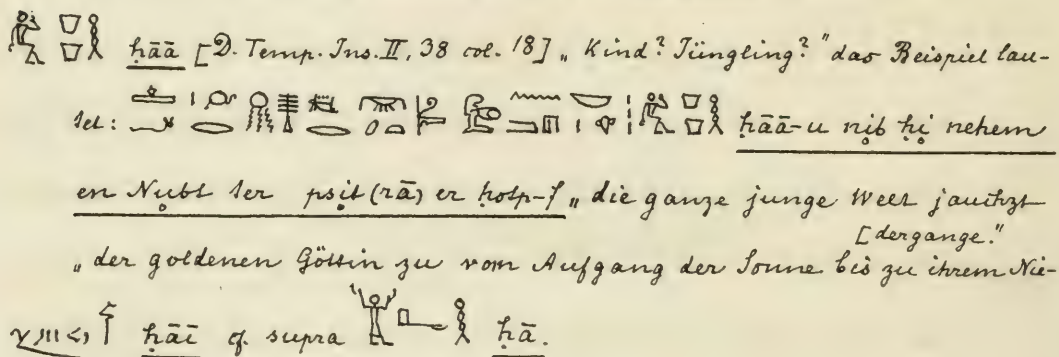 ḥāā [D. Temp. Ins. II, 38 col. 18] „Kind? Jüngling?" das Beispiel lau-
tet: ḥāā-u nib ḥi nehem
en Nubt ter psit (rā) er ḥotp-f „die ganze junge Welt jauchzt
[dergange."
„der goldenen Göttin zu vom Aufgang der Sonne bis zu ihrem Nie-
ḥāī cf. supra ḥā.